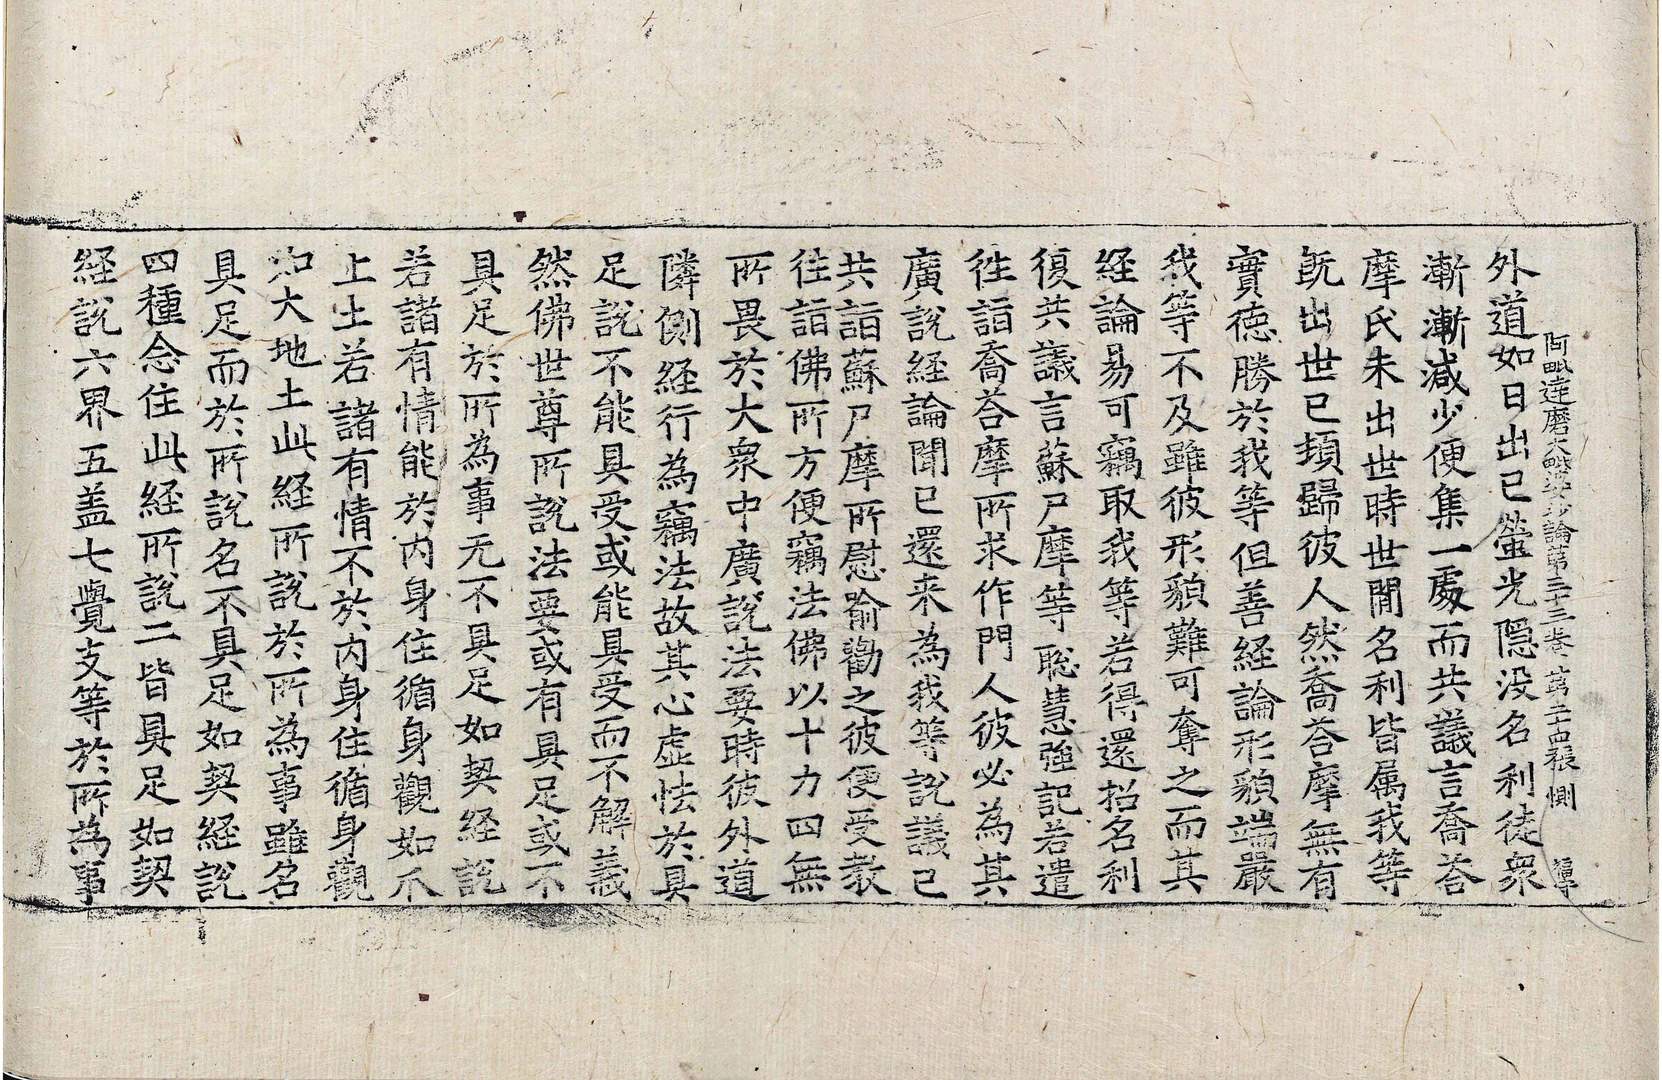 阿毗達磨大毗婆沙論第三十三卷　第二十四張　惻
外道如日出已螢光隱没名利徒衆
漸漸减少便集一處而共議言喬荅
摩氏未出世時世閒名利皆属我等
旣出世已頓歸彼人然喬荅摩無有
實徳勝於我等但善経論形貌端嚴
我等不及雖彼形貌難可奪之而其
経論易可竊取我等若得還招名利
復共議言蘇尸摩等聡慧強記若遣
徃詣喬荅摩所求作門人彼必為其
廣說経論聞已還来為我等說議已
共詣蘇尸摩所慰喻勸之彼便受教
往詣佛所方便竊法佛以十力四無
所畏於大衆中廣說法要時彼外道
隣側経行為竊法故其心虚怯於具
足說不能具受或能具受而不解義
然佛世尊所說法要或有具足或不
具足於所為事无不具足如契経說
若諸有情能於内身住循身觀如爪
上土若諸有情不於内身住循身觀
如大地土此経所說於所為事雖名
具足而於所說名不具足如契経說
四種念住此経所說二皆具足如契
経說六界五盖七覺支等於所為事